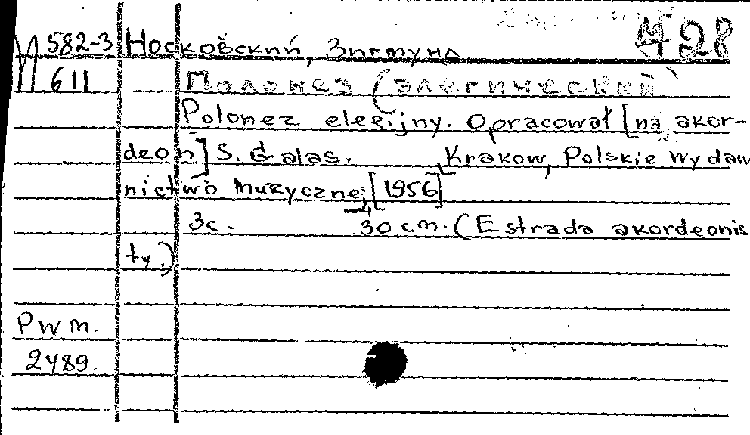 428
М 582-3 Носковский, Зигмунд
611 Полонез (элегический)
Polonez elegijny. Opracował [na akor-
deon] S. Galas. Krakow, Polskie Wydaw
nictwo Muzyczne, [1956]
3c. 30 cm. (Estrada akordeonis
ty.)
Pwm.
2489.